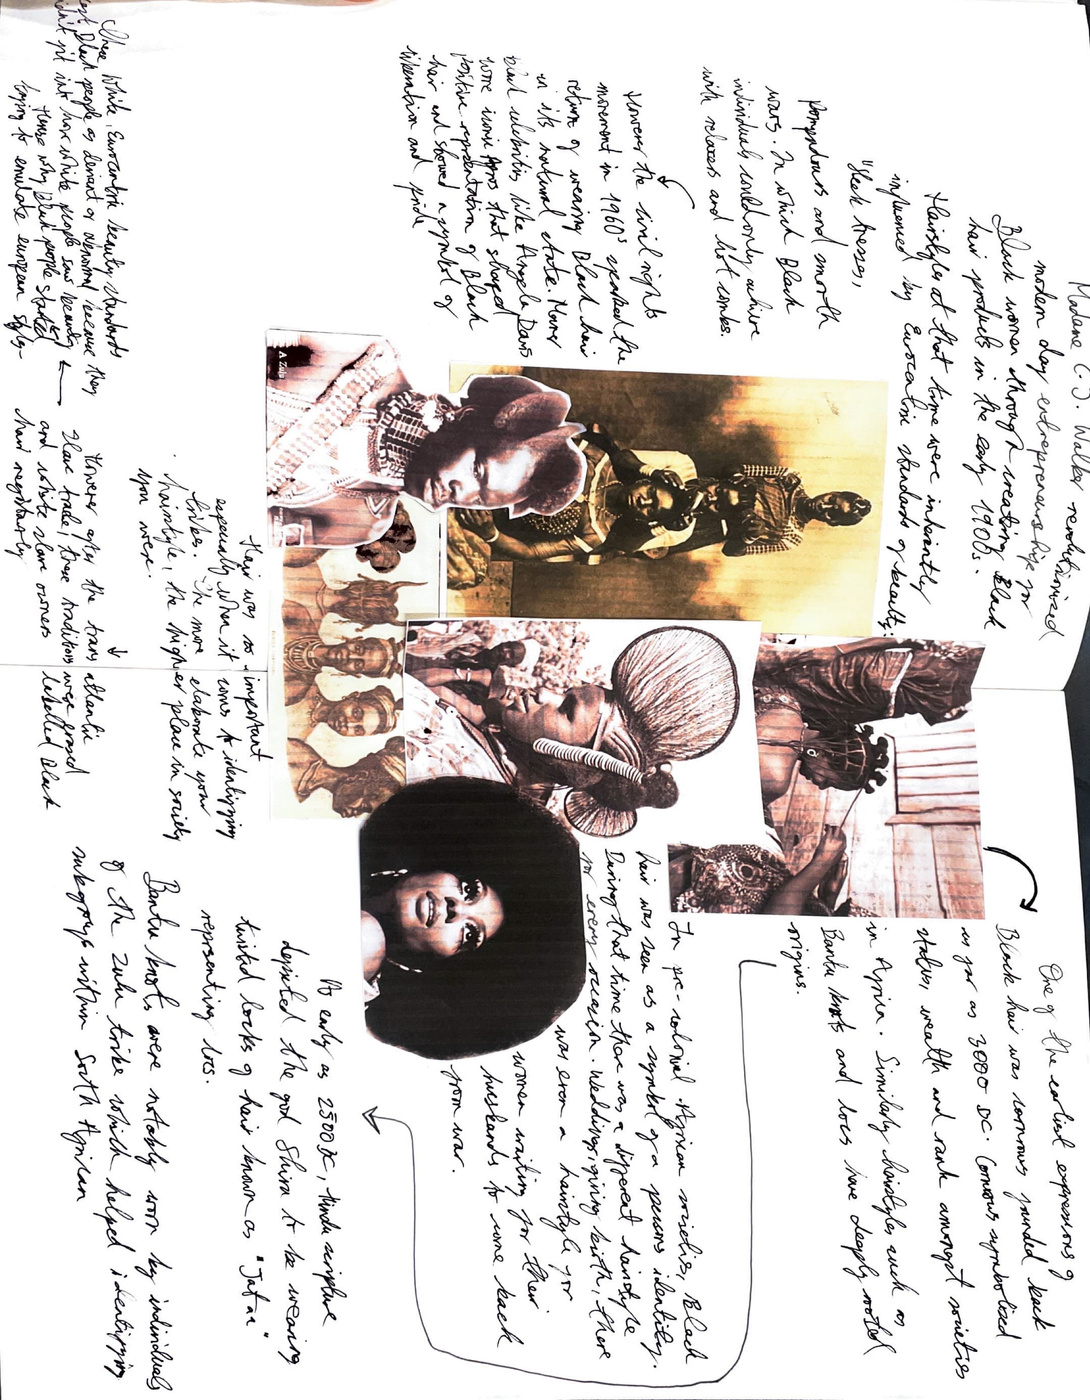 Madame C.J. Walker revolutionized
modern day entrepreneurship for
Black women through creating Black
hair products in the early 1900s.
Hairstyles at that time were inherently
influenced by Eurocentric standards of beauty;
"Sleek tresses,
Pompadours and smooth
waves. In which Black
individuals could only achieve
with relaxers and hot combs.
However the civil rights
movement in 1960s sparked the
return of wearing Black hair
in its natural state. Many
black celebrities like Angela Davis
wore iconic Afros that shaped
positive representation of Black
hair and showed a symbol of
liberation and pride
White, Eurocentric beauty standards
Black people as deviant or abnormal because they
didn't fit into how white people saw beauty
Hence why Black people started
trying to emulate european styles
A Zulu
Hair was so important
especially when it comes to identifying
tribes. The more elaborate your
hairstyle, the higher place in society
you were.
However after the trans atlantic
slave trade, these traditions were erased
and white slave owners labelled Black
hair negatively
One of the earliest expressions of
Black hair was cornrows founded back
as far as 3000 BC. Cornrows symbolized
status, wealth and rank amongst societies
in Africa. Similarly hairstyles such as
Bantu knots and locs have deeply rooted
origins.
In pre-colonial African societies, Black
hair was seen as a symbol of a persons identity.
During that time there was a different hairstyle
for every occasion. Weddings, giving birth, there
was even a hairstyle for
women waiting for their
husbands to come back
from war.
As early as 2500BC, Hindu scripture
depicted the god Shiva to be wearing
twisted locks of hair known as "Jataa"
representing locs.
Bantu knots were notably worn by individuals
of the Zulu tribe which helped identifying
subgroups within South African